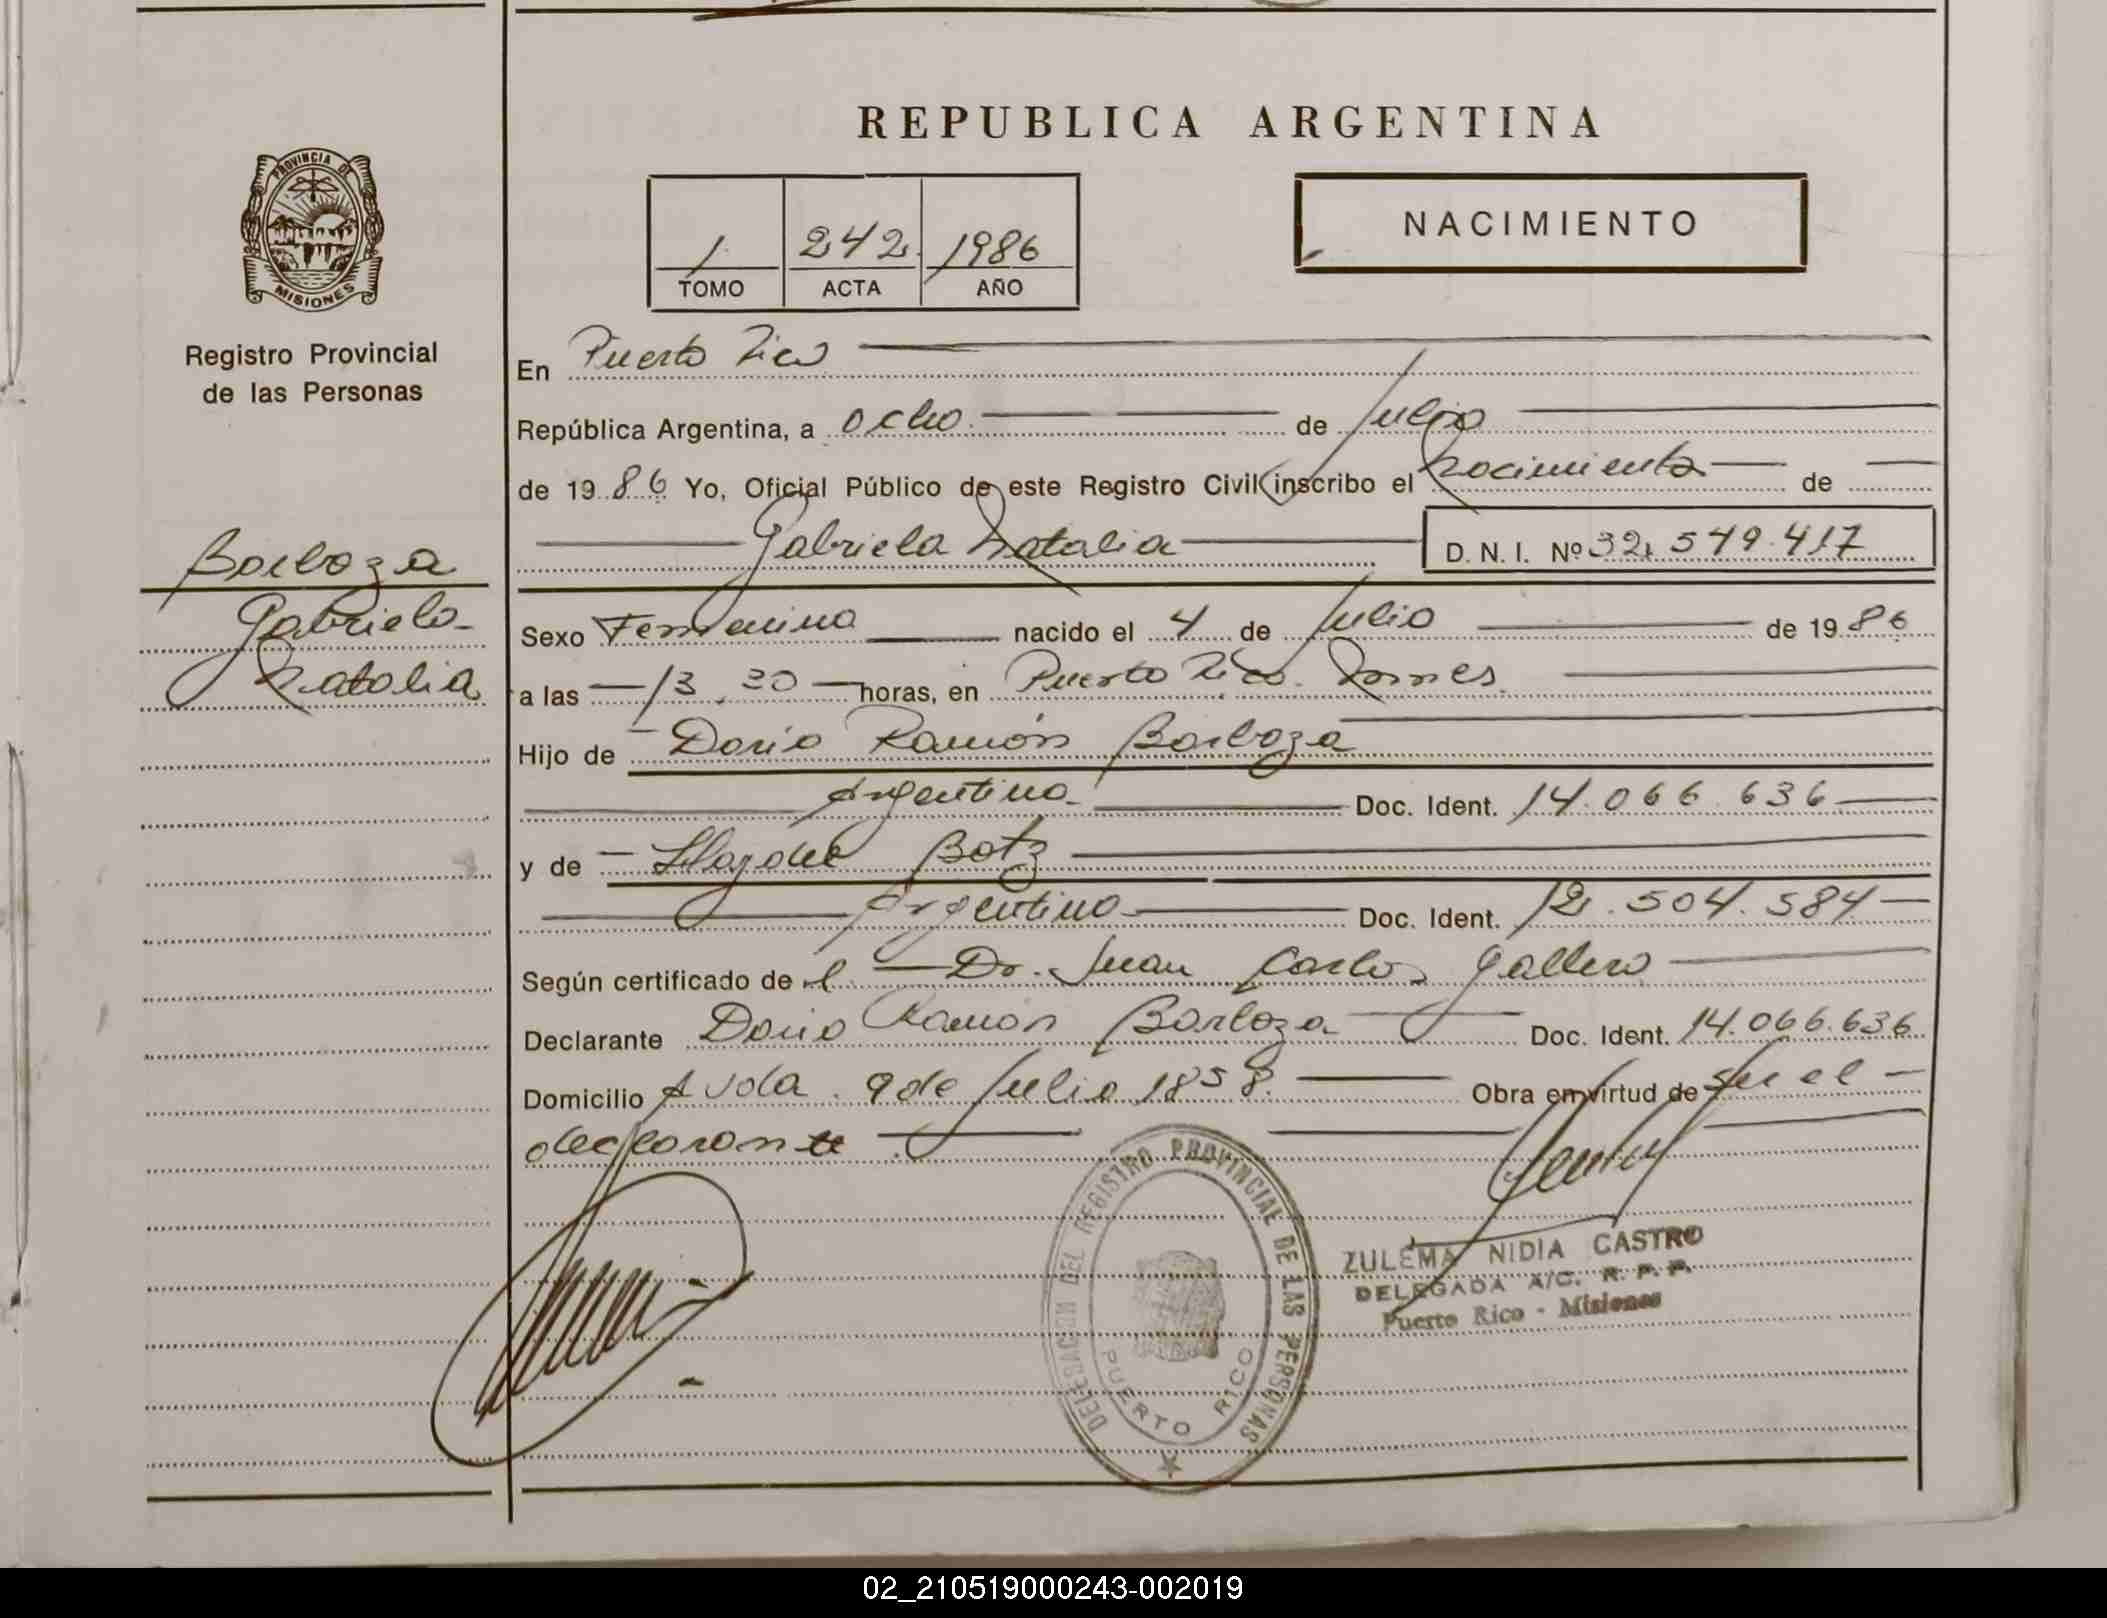 REPUBLICA ARGENTINA
PROVINCIA DE
MISIONES
Registro Provincial
de las Personas
1 242 1986
TOMO ACTA AÑO
NACIMIENTO
En Puerto Rico
República Argentina, a ocho de Julio
de 1986 Yo, Oficial Público de este Registro Civil inscribo el nacimiento de
Gabriela Natalia D. N. I. Nº 32.549.417
Barboza
Gabriela
Natalia
Sexo Femenino nacido el 4 de Julio de 1986
a las 13.30 horas, en Puerto Rico.
Hijo de Dario Ramón Barboza
Argentino Doc. Ident. 14.066.636
y de Botz
Argentina Doc. Ident. 12.504.584
Según certificado de el Dr. Juan Carlos Gallero
Declarante Dario Ramón Barboza Doc. Ident. 14.066.636
Domicilio Avda. 9 de Julio 1858. Obra en virtud de ser el
declarante.
DELEGACION DEL REGISTRO PROVINCIAL DE LAS PERSONAS
PUERTO RICO
ZULEMA NIDIA CASTRO
DELEGADA A/C. R. P. P.
Puerto Rico - Misiones
02_210519000243-002019